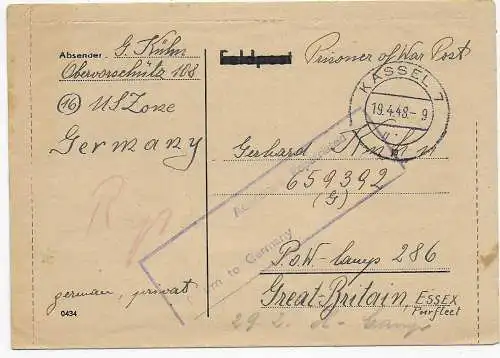 Absender: G. Kühn
Obervorschütz 108
(16) US Zone
Germany
german, privat
0434
Feldpost Prisoner of War Post
KASSEL 7
19.4.48.- 9
Gerhard Kühn
659392
(G)
to Germany
P.o.W-Camp 286
Great-Britain, ESSEX
Purfleet
29